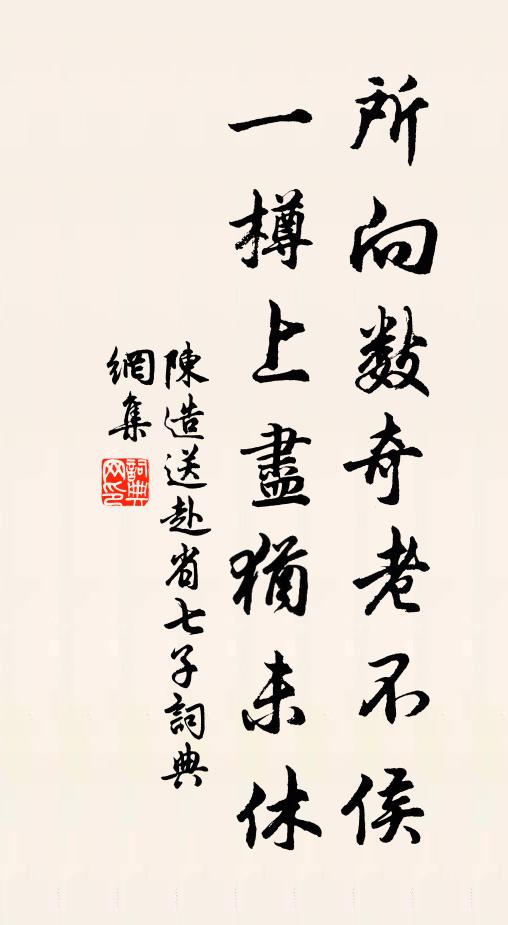 所向數奇老不侯
一樽上盡猶未休
陳造送赴省七子詞典
網集
詞典網印